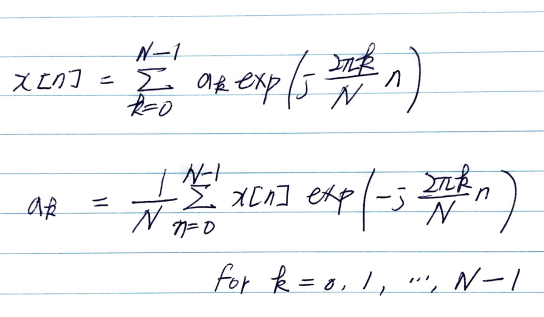 x[n] = \sum_{k=0}^{N-1} a_k exp(j \frac{2πk}{N} n)
a_k = \frac{1}{N} \sum_{n=0}^{N-1} x[n] exp(-j \frac{2πk}{N} n)
for k = 0, 1, ..., N-1